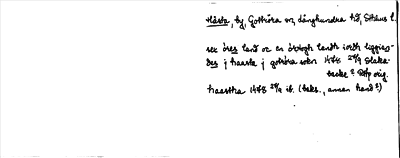 Håsta, by, Gottröra sn, Långhundra hd, Sthlms l.
sex öres land oc en örtogh landh iordh liggien-
des j haasta j gotröra sokn 1478 29/9 Slaka-
backe? RAp orig.
haastha 1478 29/9 ib. (baks., annan hand?)